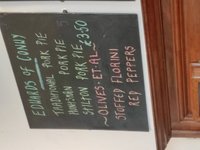 EDWARDS OF CONWY
TRADITIONAL PORK PIE
HUNTSMAN PORK PIE
STILTON PORK PIE £3.50
~OLIVES ET AL~
STUFFED FLORINI
RED PEPPERS